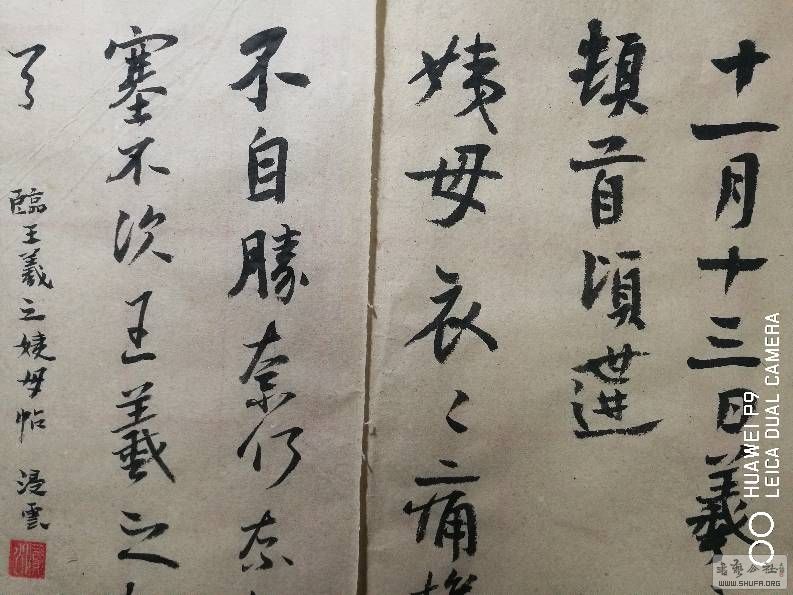 十一月十三日羲
頓首頃遘
姨母哀〻痛摧
不自勝奈何奈
塞不次王羲之
臨王羲之姨母帖 浸雲
HUAWEI P9
LEICA DUAL CAMERA
书艺公社
WWW.SHUFA.ORG